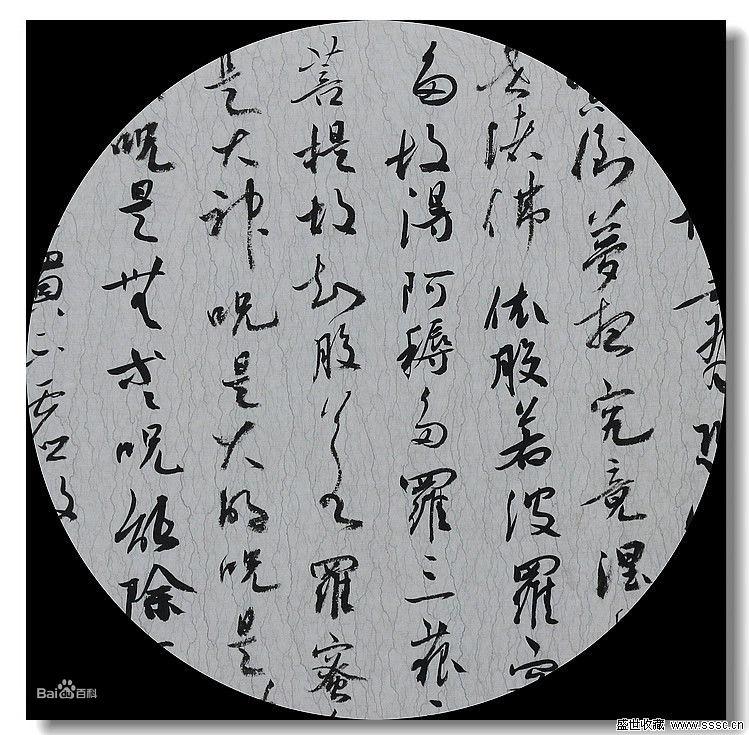 倒夢想究竟涅
世諸佛依般若波羅蜜
多故得阿耨多羅三藐
菩提故知般若波羅蜜
是大神呪是大明呪是
呪是無等呪能除
實不虛故
Baidu百科
盛世收藏 www.sssc.cn